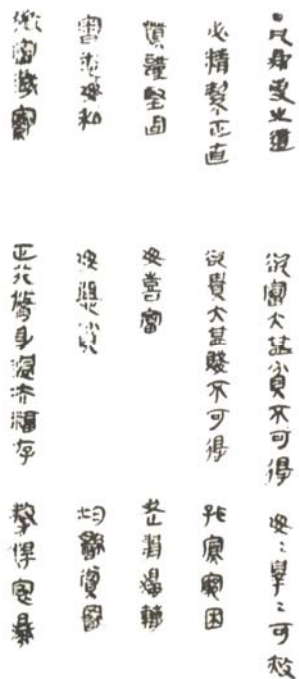 ·凡為吏之道
必精絜正直
慎謹堅固
審悉毋私
微密韱察
欲富大甚貧不可得
欲貴大甚賤不可得
毋喜富
毋惡貧
正行脩身過去福存
毋=罪=可赦
孤寡窮困
老弱獨轉
均繇賞罰